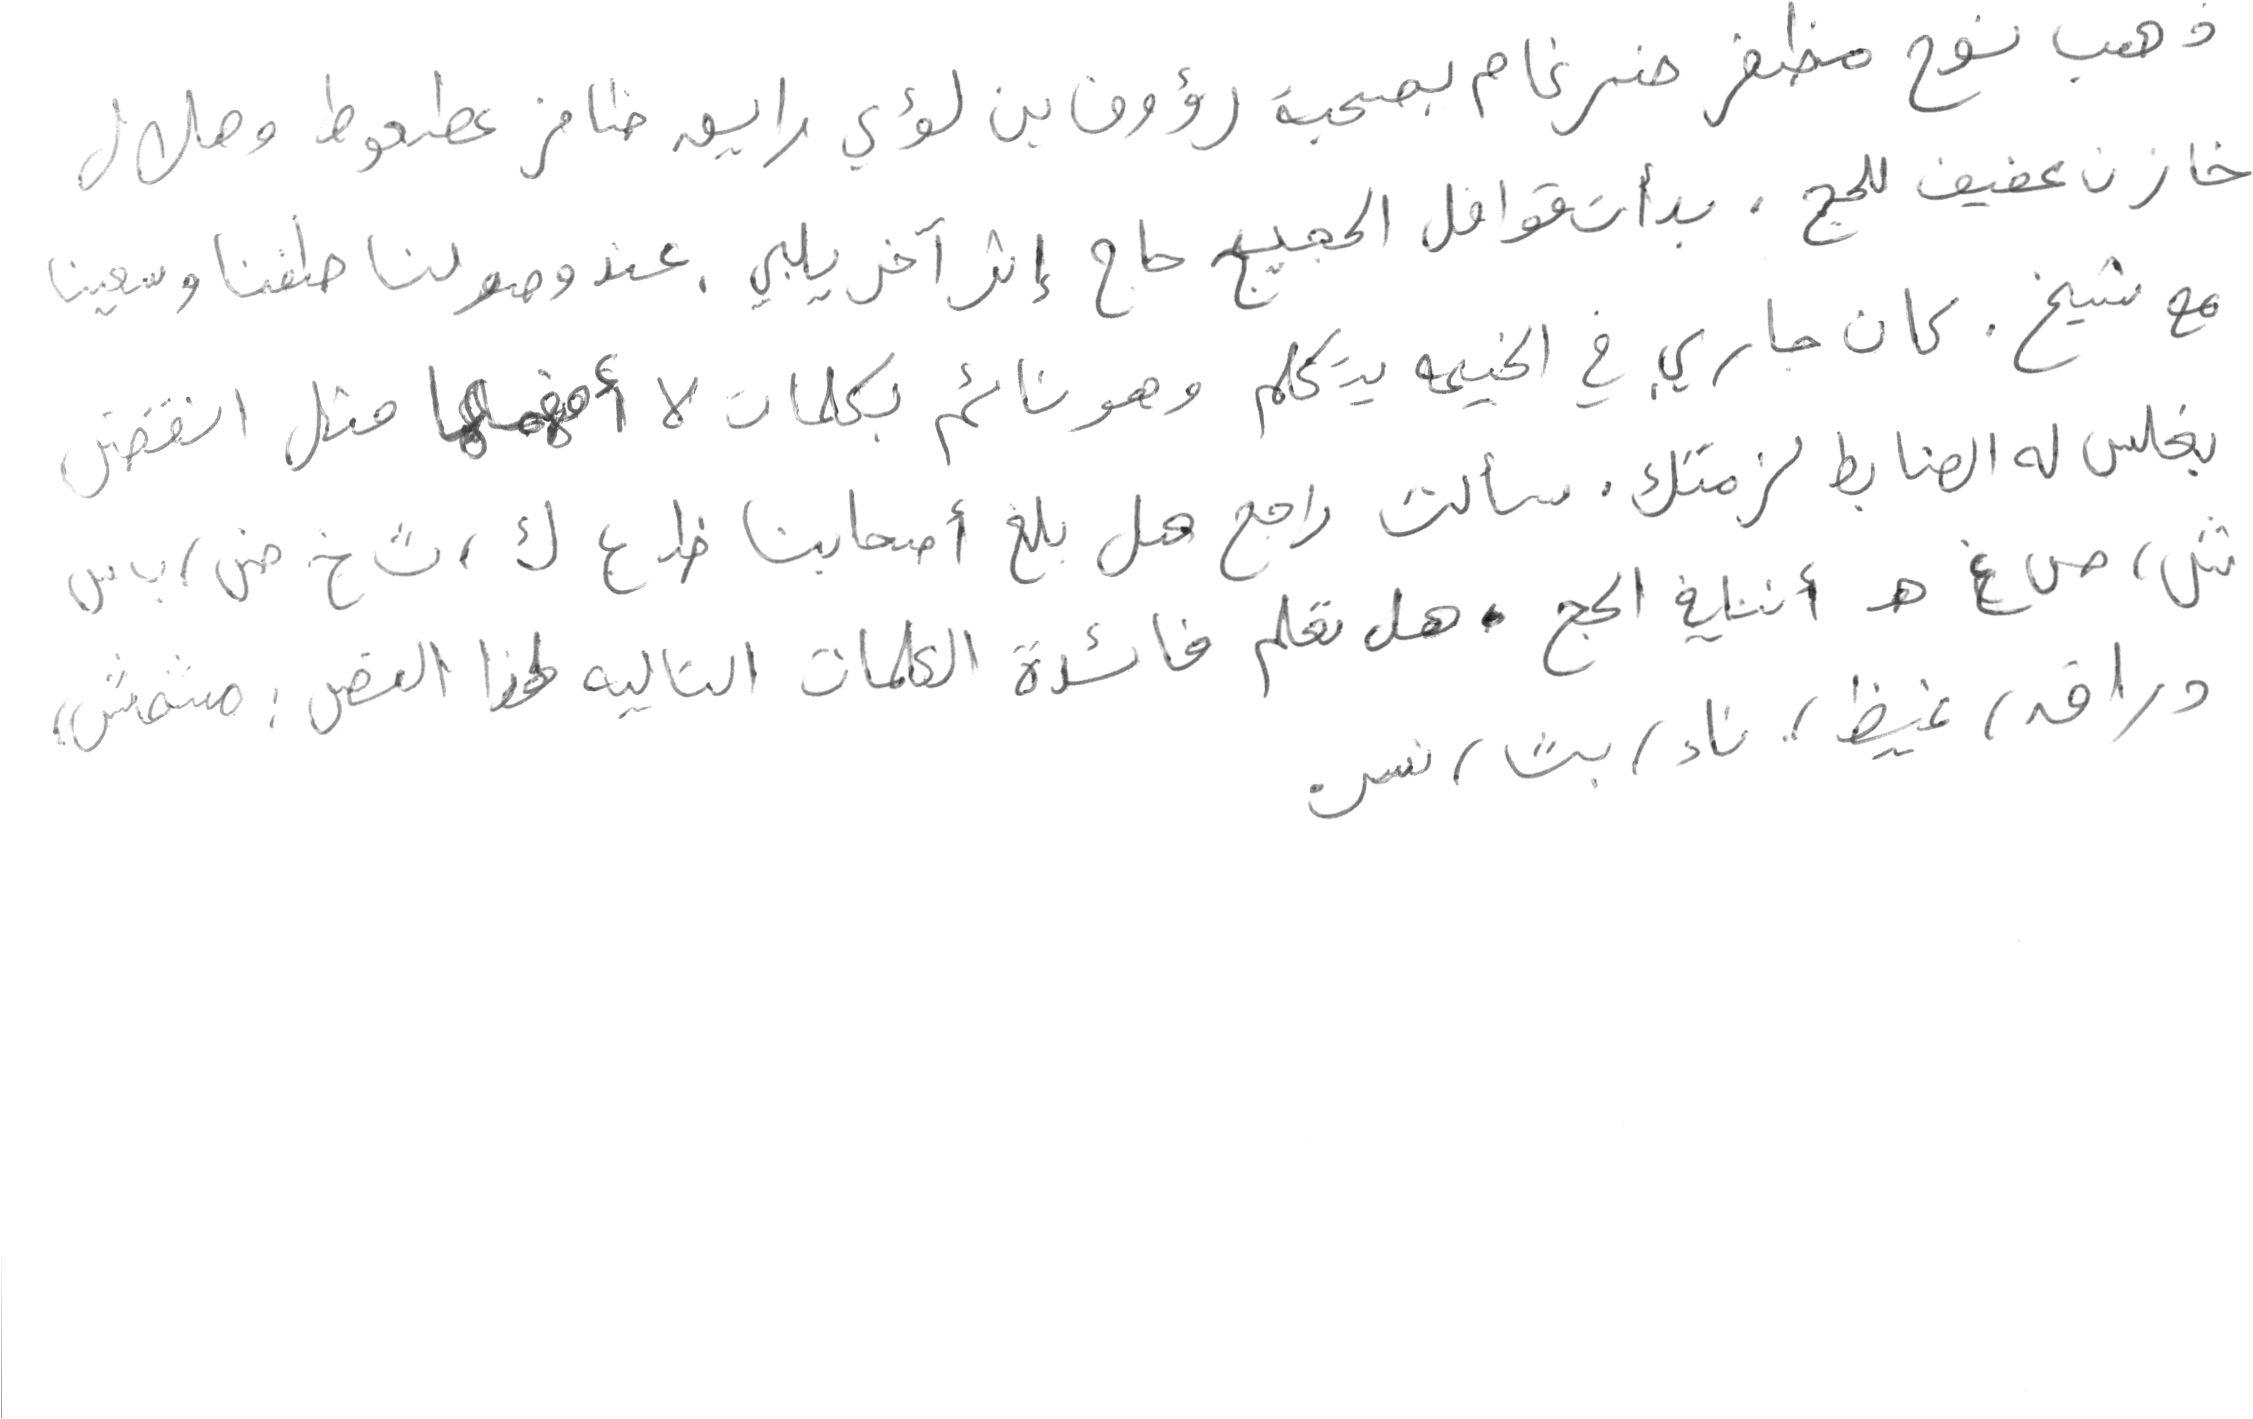 ذهب نوح مظفر ضرغام بصحبة رؤوف بن لؤي راسيه ظافر عطعوط وهلال
خازن عفيف للحج . بدأت قوافل الحجيج حاج إثر آخر يلبي . عند وصولنا طفنا وسعينا
مع شيخ . كان جاري في الخيمه يتكلم وهو نائم بكلمات لا أفهمها مثل انقض
بغلس له الضابط لزمتك . سألت راجح هل بلغ أصحابنا ظ ع ك ، ث خ ض ، ب س
ش ، ص غ هـ أننا في الحج . هل تعلم فائدة الكلمات التاليه لهذا النص : مشمش ،
دراقه ، غيظ ، ناد ، بث ، نس .